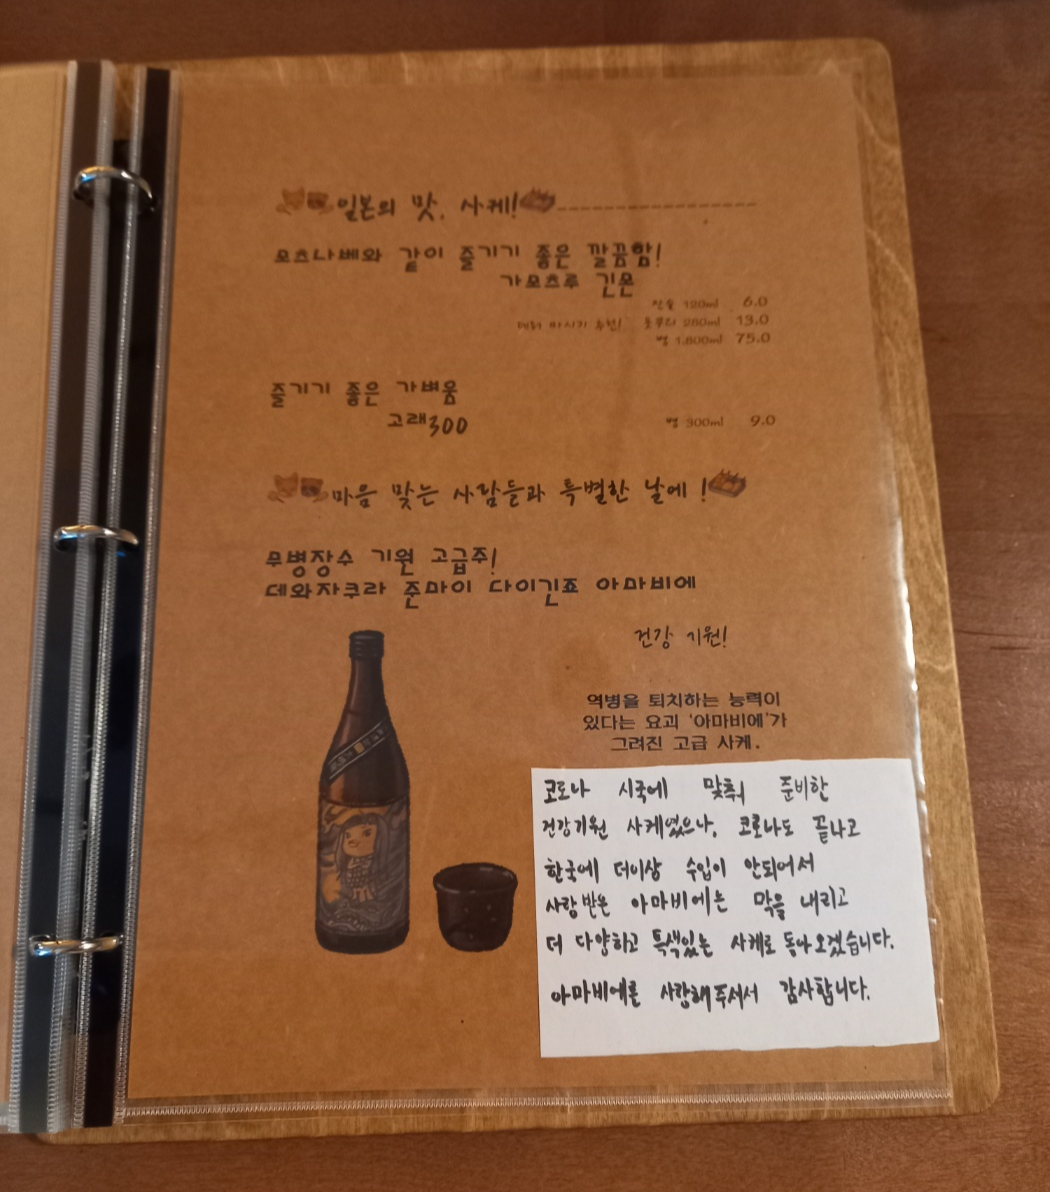 일본의 맛, 사케!
모츠나베와 같이 즐기기 좋은 깔끔함!
가모츠루 긴몬
잔술 120ml 6.0
데워 마시기 추천! 돗쿠리 280ml 13.0
병 1,800ml 75.0
즐기기 좋은 가벼움
고래300
병 300ml 9.0
마음 맞는 사람들과 특별한 날에!
무병장수 기원 고급주!
데와자쿠라 준마이 다이긴죠 아마비에
건강 기원!
역병을 퇴치하는 능력이
있다는 요괴 '아마비에'가
그려진 고급 사케.
코로나 시국에 맞춰 준비한
건강기원 사케였으나, 코로나도 끝나고
한국에 더이상 수입이 안되어서
사랑받은 아마비에는 막을 내리고
더 다양하고 특색있는 사케로 돌아오겠습니다.
아마비에를 사랑해주셔서 감사합니다.